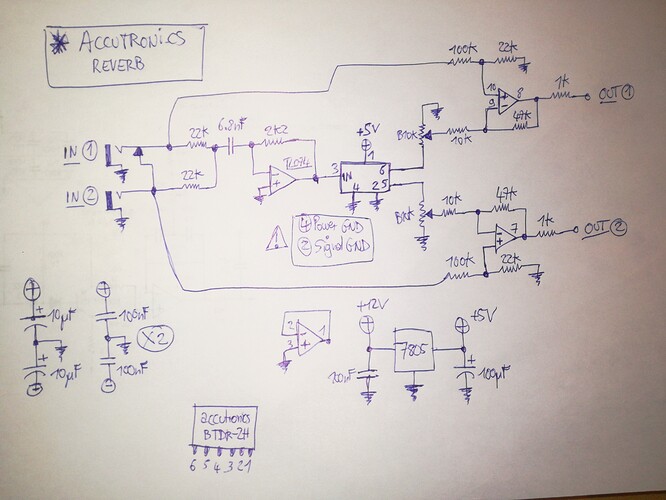 * ACCUTRONICS
REVERB
100k
22k
10
8
9
1k
OUT ①
47k
B10k
10k
+5V
1
IN ①
22k
6.8nF
2k2
TL074
3
IN
6
4
2
5
IN ②
22k
④ Power GND
② Signal GND
10k
47k
7
1k
OUT ②
100k
22k
+
10µF
+
10µF
-
+
100nF
X2
100nF
-
2
3
1
+12V
7805
+5V
100nF
100µF
accutronics
BTDR-2H
6 5 4 3 2 1